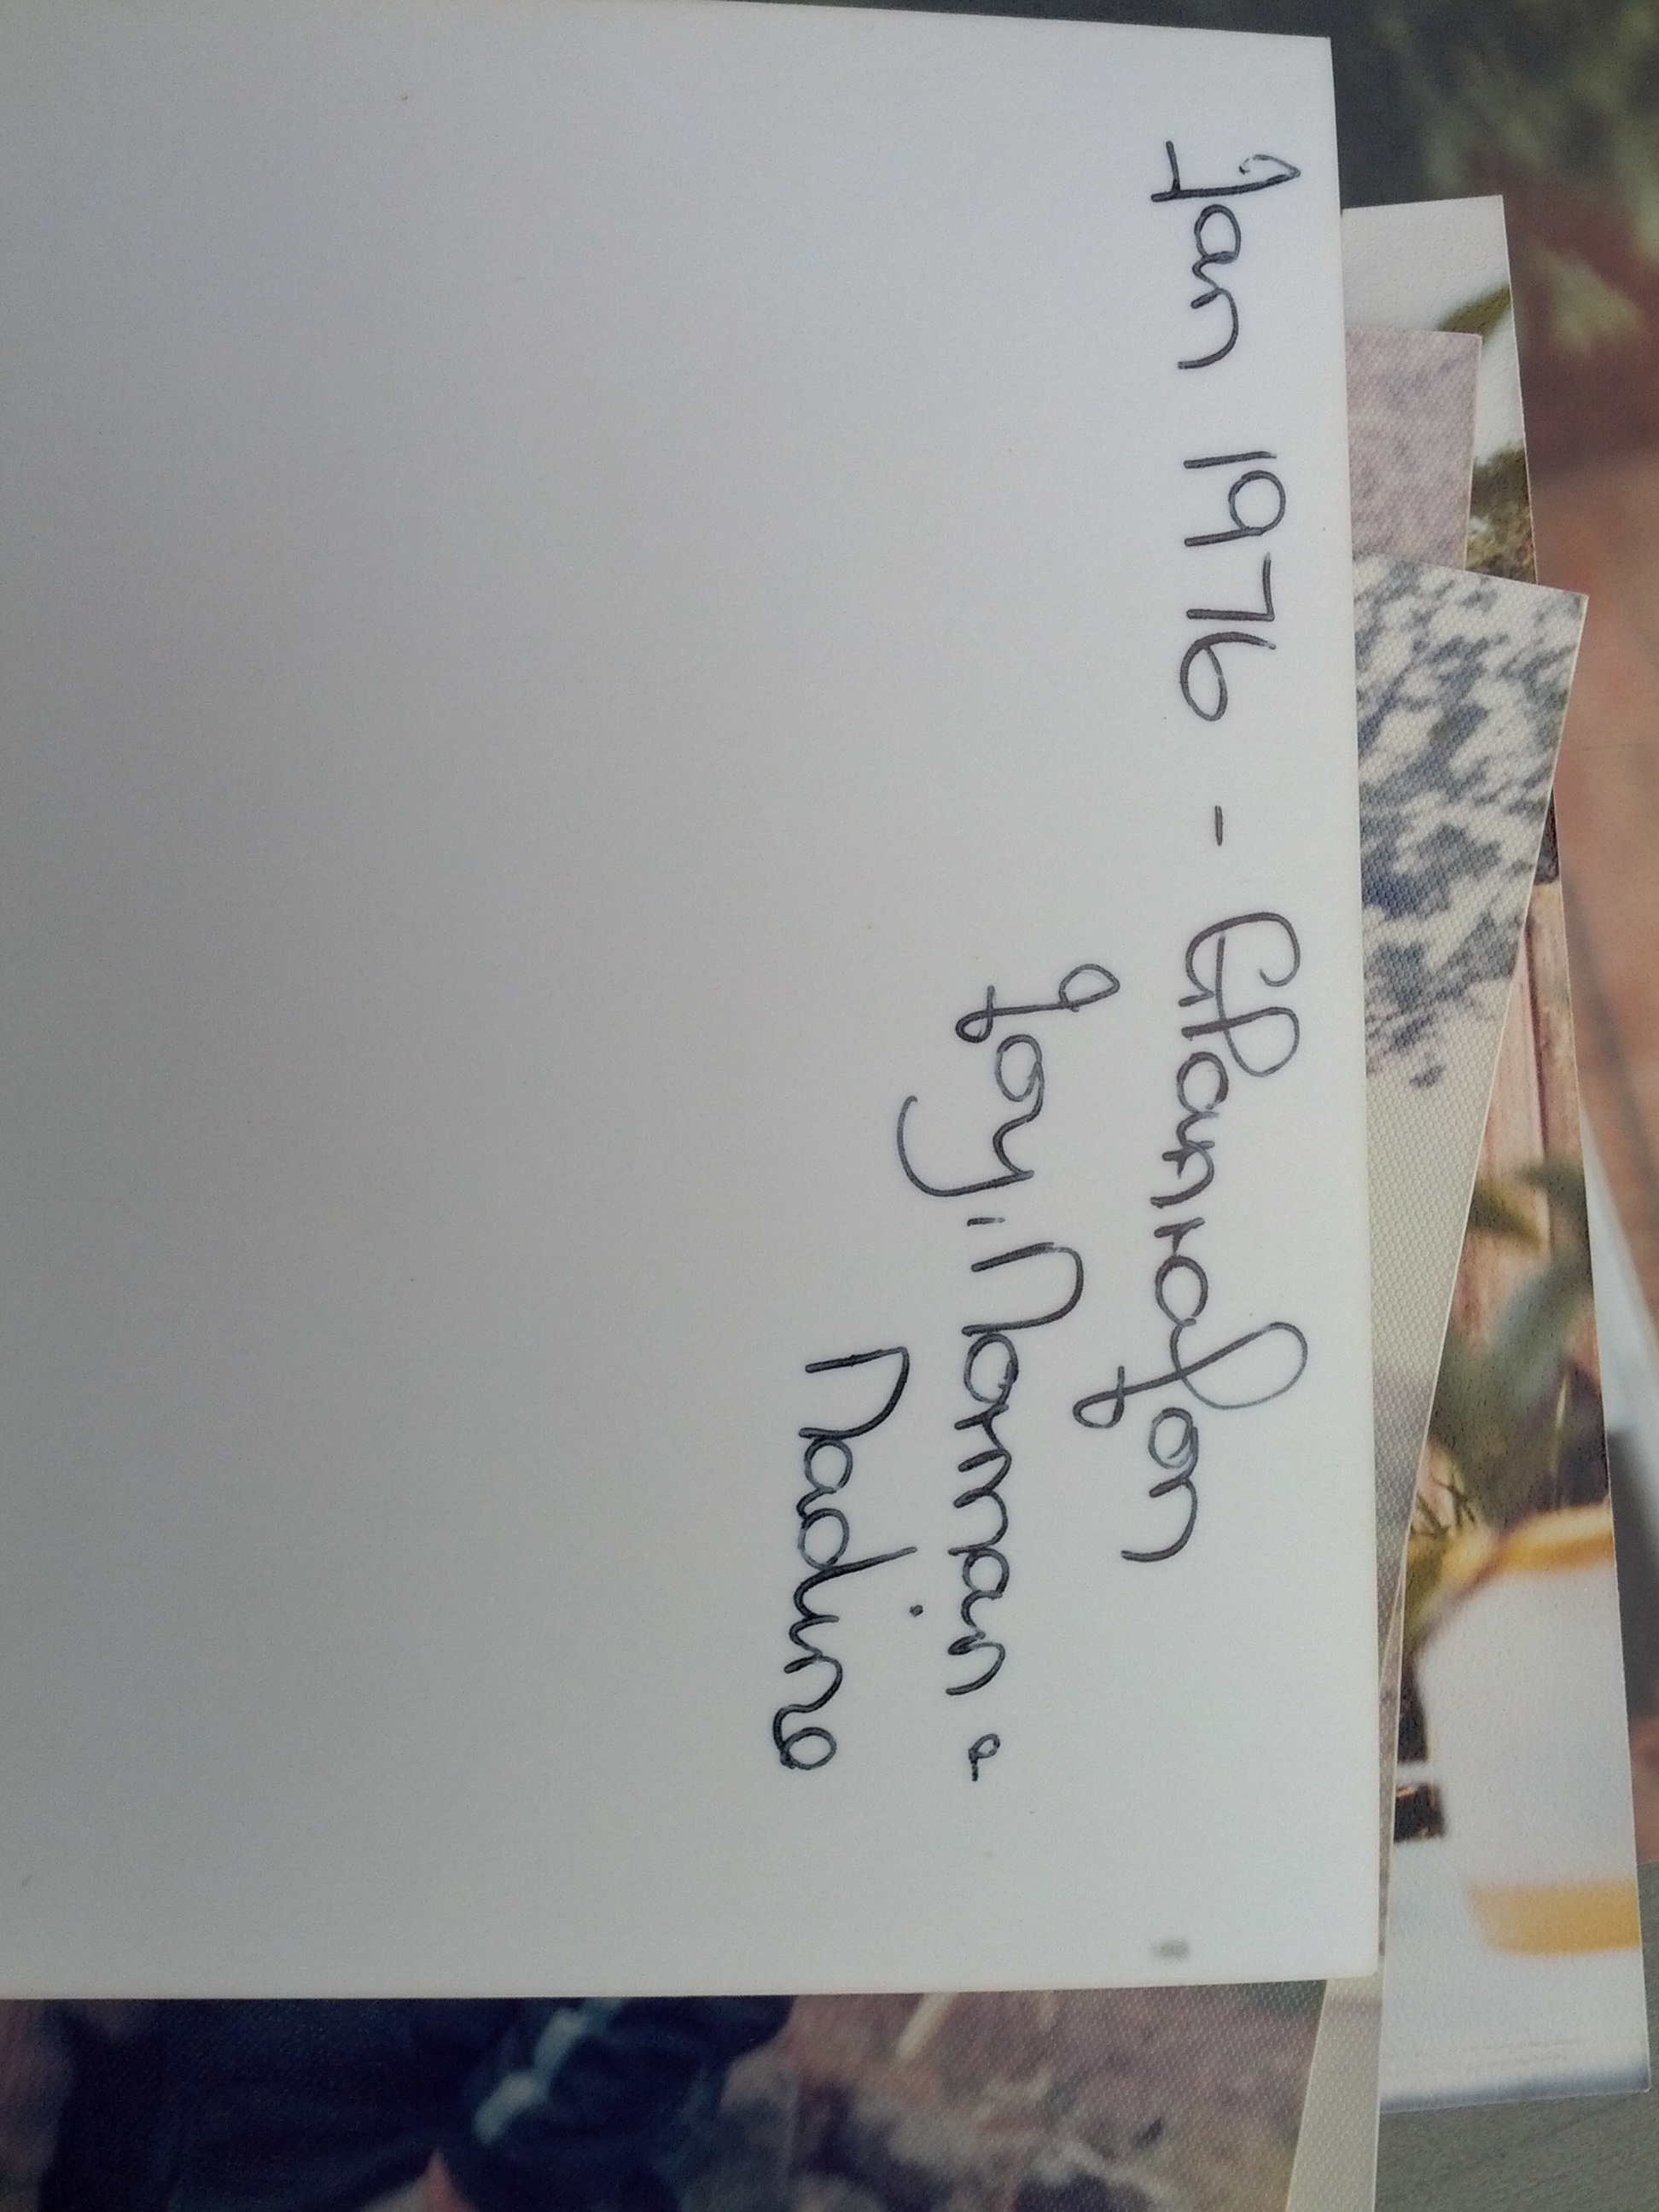 Jan 1976 - Glanrafon
Joy, Norman &
Nadine